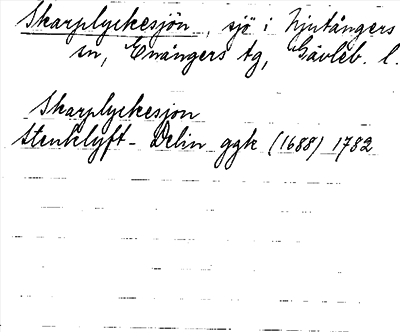 Skarplyckesjön, sjö i Njutångers
sn, Enångers tg, Gävleb. l.
Skarplyckesjon
Stenklyft-Delin ggk (1688) 1782